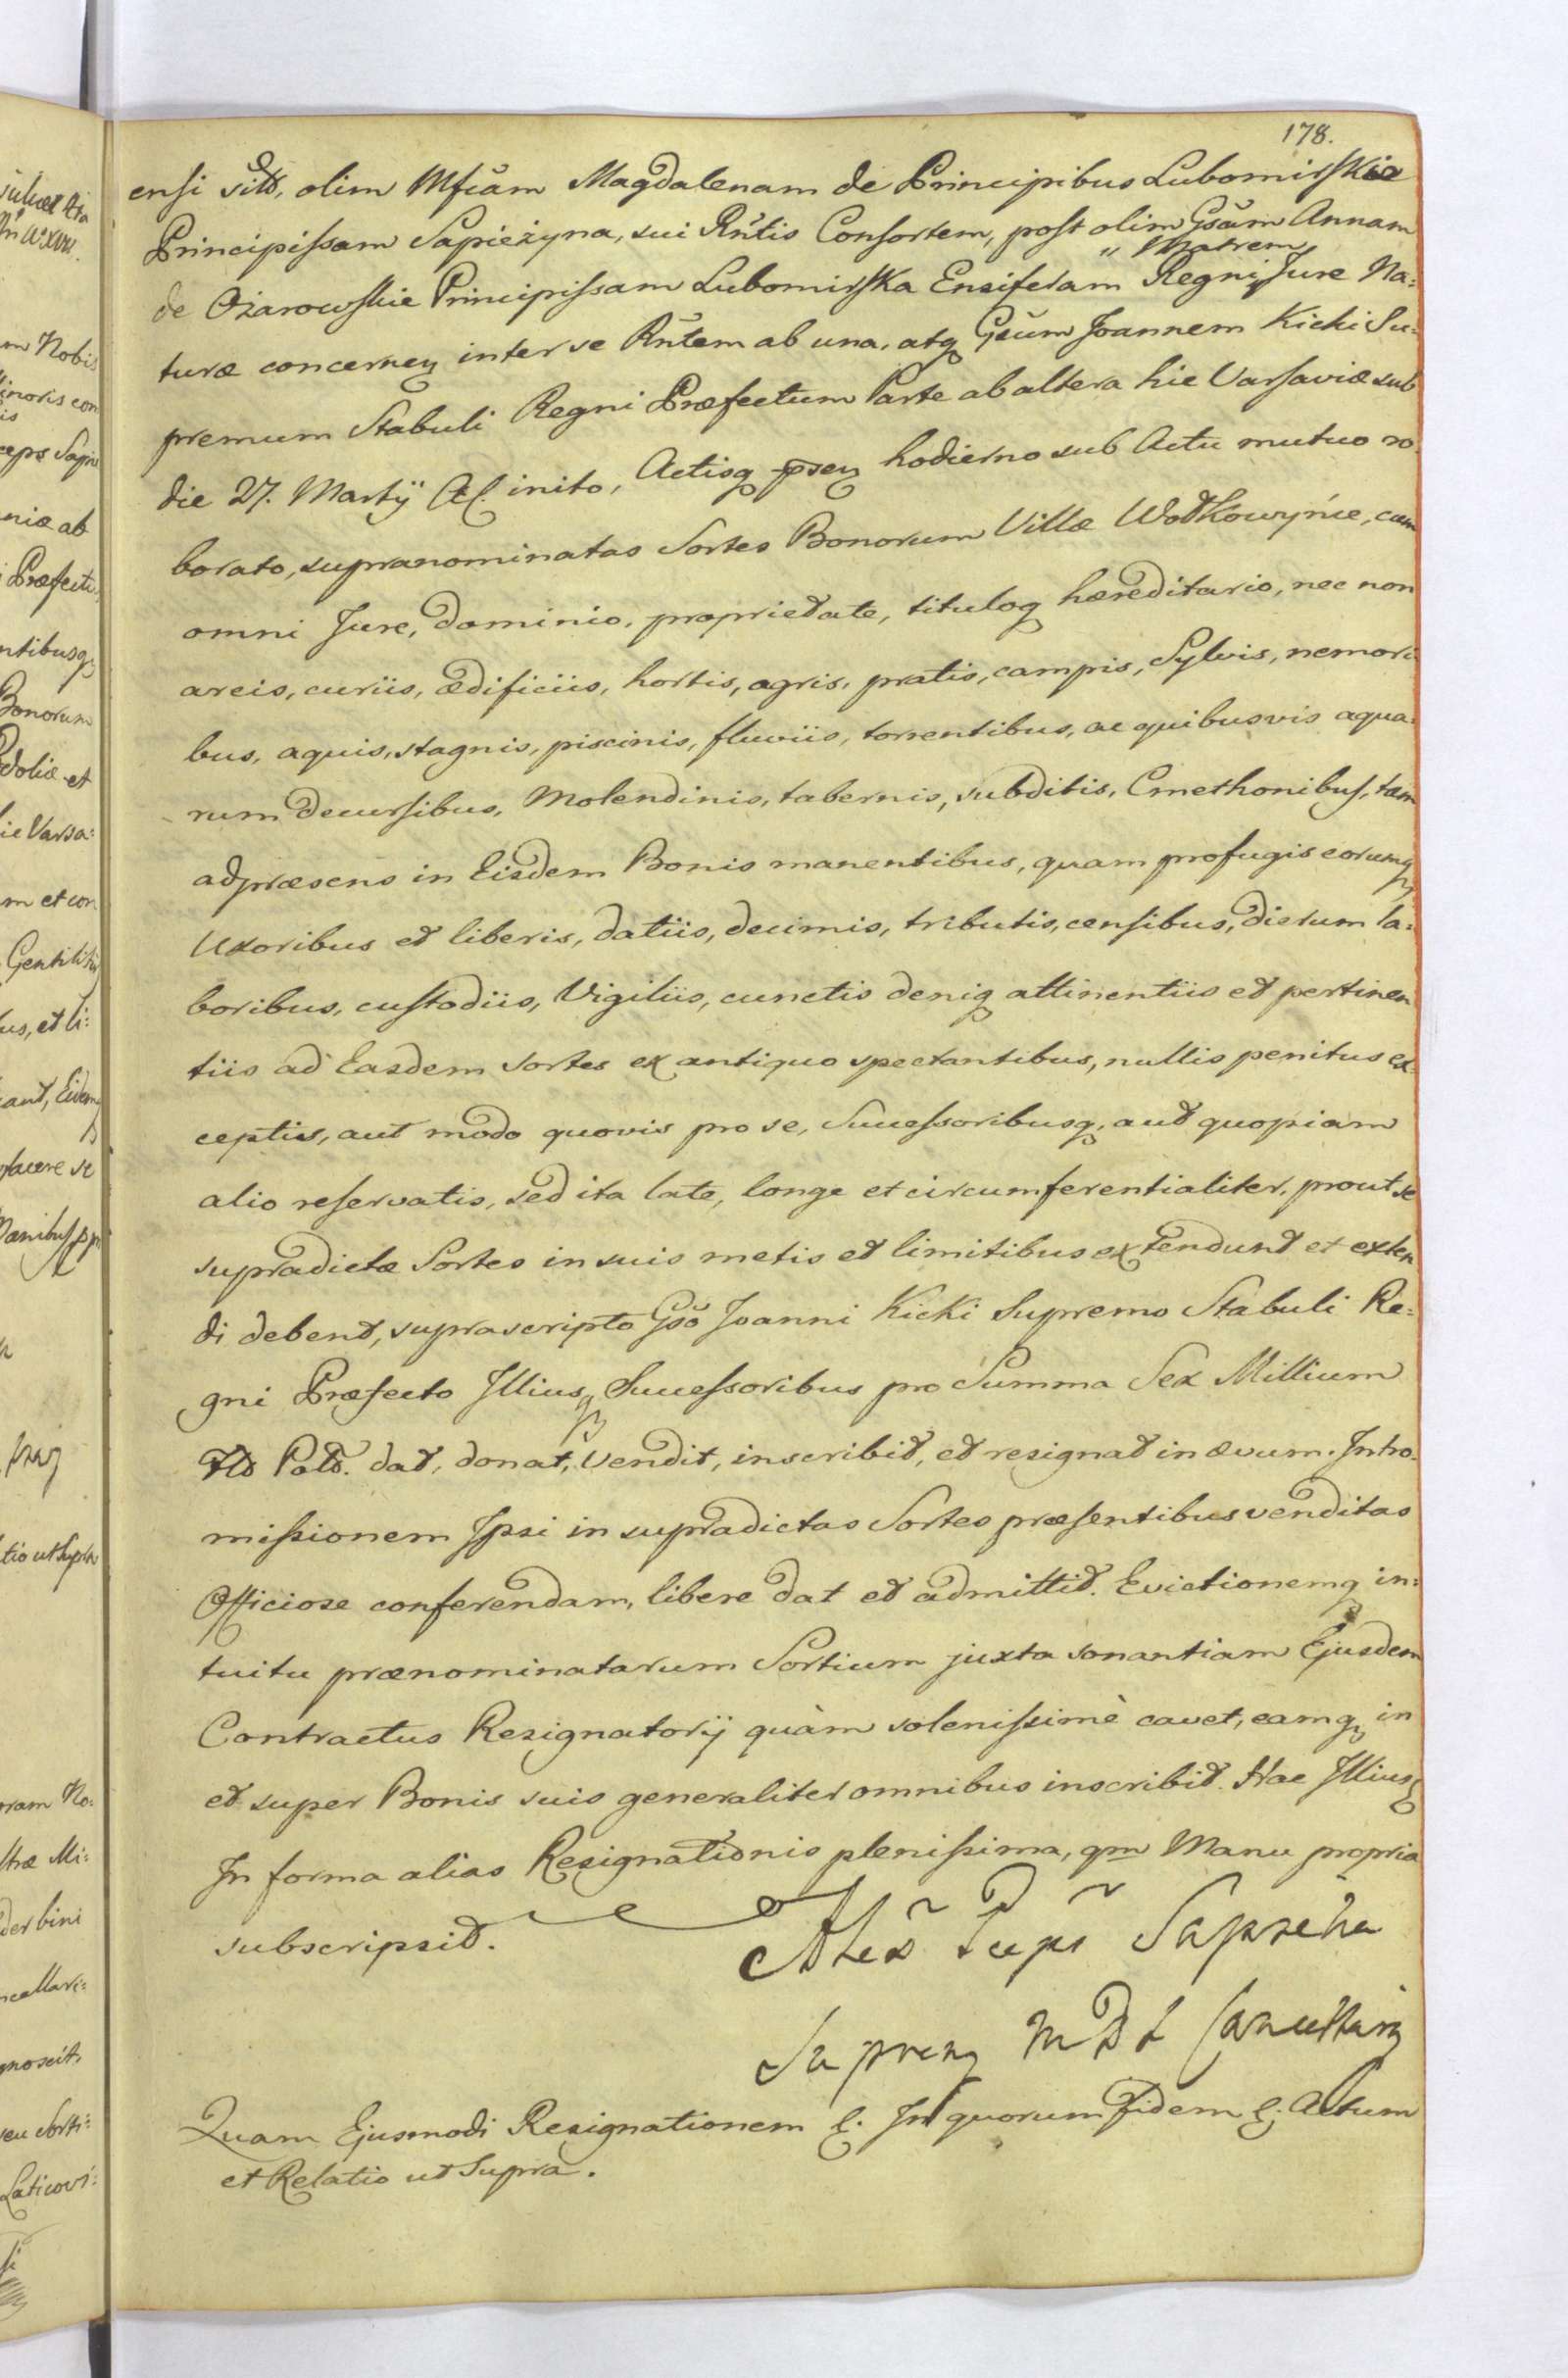 178.
ensi sitts, olim Mfcam Magdalenam de Principibus Lubomirskie
Principissam Sapieżyna, sui Rñtis Consortem, post olim Gsam Annam
de Ożarowskie Principissam Lubomirska Ensiferam Regni „Matrem, Jure Na:
turæ concernen inter se Rñtem ab una, atq Gsum Joannem Kicki Su:
premum Stabuli Regni Præfectum Parte ab altera hic Varsaviæ sub
die 27. Martij inito, Actisq psen hodierno sub Actu mutuo ro
borato, supranominatas Sortes Bonorum Villæ Wołkowyńce, cum
omni Jure, dominio, proprietate, tituloq hæreditario, nec non
areis, curiis, ædificiis, hortis, agris, pratis, campis, Sylvis, nemori
bus, aquis, stagnis, piscinis, fluviis, torrentibus, ac quibusvis aqua:
rum decursibus, Molendinis, tabernis, subditis, Cmethonibus, tam
adpræsens in Eisdem Bonis manentibus, quam profugis eorumq
Uxoribus et liberis, datiis, decimis, tributis, censibus, dierum la:
boribus, custodiis, Vigiliis, cunctis deniq attinentiis et pertinen
tiis ad Easdem Sortes ex antiquo spectantibus, nullis penitus ex
ceptis, aut modo quovis pro se, Successoribusq, aut quopiam
alio reservatis, sed ita late, longe et circumferentialiter, prout se
supradictæ Sortes in suis metis et limitibus extendunt et exten
di debent, suprascripto Gso Joanni Kicki Supremo Stabuli Re:
gni Præfecto Illiusq Successoribus pro Summa Sex Millium
Flo Polo. dat, donat, Vendit, inscribit, et resignat in ævum. Intro:
missionem Ipsi in supradictas Sortes præsentibus venditas
Officiose conferendam, libere dat et admittit. Evictionemq in:
tuitu prænominatarum Sortium juxta sonantiam Ejusdem
Contractus Resignatorij quàm solenissimè cavet, eamq in
et super Bonis suis generaliter omnibus inscribit. Hac Illius
In forma alias Resignationis plenissima, qm Manu propria
subscripsit. Alex Sapieha
Suprem M D L Cancellariq
Quam Ejusmodi Resignationem &. In quorum fidem &. Actum
et Relatio ut Supra.